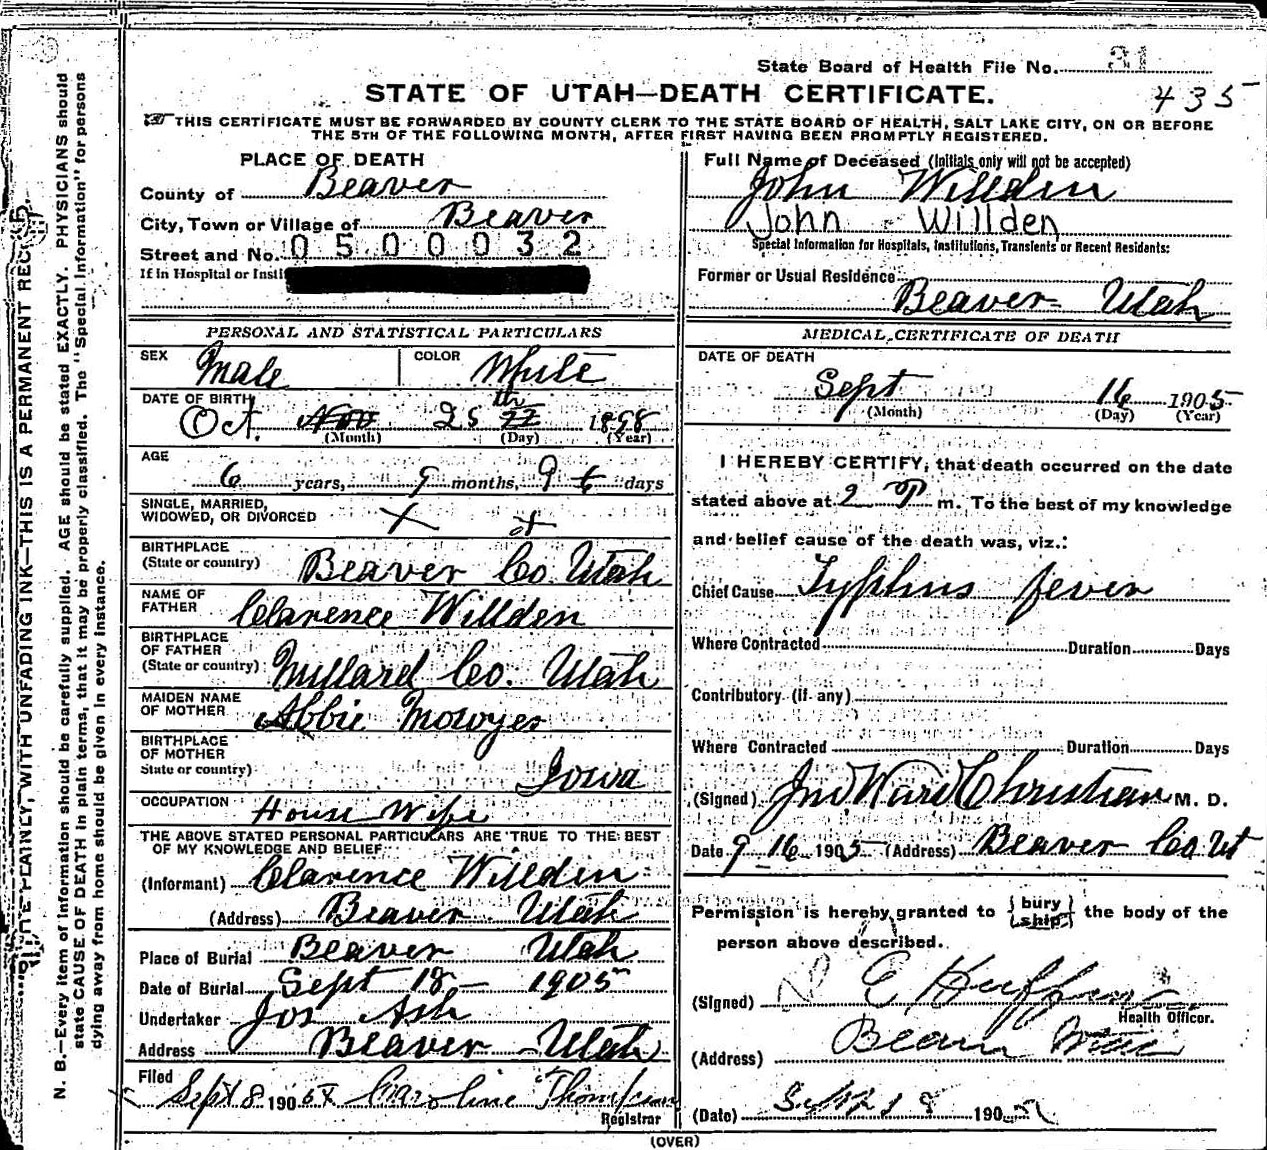 State Board of Health File No. 31
435
STATE OF UTAH—DEATH CERTIFICATE.
THIS CERTIFICATE MUST BE FORWARDED BY COUNTY CLERK TO THE STATE BOARD OF HEALTH, SALT LAKE CITY, ON OR BEFORE
THE 5TH OF THE FOLLOWING MONTH, AFTER FIRST HAVING BEEN PROMPTLY REGISTERED.
PLACE OF DEATH
County of Beaver
City, Town or Village of Beaver
Street and No. 0500032
If in Hospital or Insti
Full Name of Deceased (Initials only will not be accepted)
John Willden
John - Willden
Special Information for Hospitals, Institutions, Transients or Recent Residents:
Former or Usual Residence
Beaver - Utah
PERSONAL AND STATISTICAL PARTICULARS
SEX Male COLOR White
DATE OF BIRTH
Oct. Nov 25 th 22 1898
(Month) (Day) (Year)
AGE
6 years, 9 months, 9 6 days
SINGLE, MARRIED,
WIDOWED, OR DIVORCED
BIRTHPLACE
(State or country) Beaver Co. Utah
NAME OF
FATHER Clarence Willden
BIRTHPLACE
OF FATHER
(State or country) Millard Co. Utah
MAIDEN NAME
OF MOTHER Abbie Mowyer
BIRTHPLACE
OF MOTHER
State or country) Iowa
OCCUPATION House Wife
THE ABOVE STATED PERSONAL PARTICULARS ARE TRUE TO THE BEST
OF MY KNOWLEDGE AND BELIEF
(Informant) Clarence Willden
(Address) Beaver Utah
Place of Burial Beaver Utah
Date of Burial Sept 18 - 1905
Undertaker Jos Ash
Address Beaver - Utah
Filed
Sept 18 1905 Caroline Thompson
Registrar
MEDICAL CERTIFICATE OF DEATH
DATE OF DEATH
Sept 16 1905
(Month) (Day) (Year)
I HEREBY CERTIFY, that death occurred on the date
stated above at 2 P m. To the best of my knowledge
and belief cause of the death was, viz.:
Chief Cause Typhus fever
Where Contracted Duration Days
Contributory (if any)
Where Contracted Duration Days
(Signed) Jno Ward Christian M. D.
Date 9-16 1905 (Address) Beaver Co Ut
Permission is hereby granted to { bury ship } the body of the
person above described.
(Signed)
Health Officer.
(Address) Beaver Utah
(Date) Sept 18 1905
(OVER)
N. B.—Every item of information should be carefully supplied. AGE should be stated EXACTLY. PHYSICIANS should
state CAUSE OF DEATH in plain terms, that it may be properly classified. The "Special Information" for persons
dying away from home should be given in every instance.
WRITE PLAINLY, WITH UNFADING INK—THIS IS A PERMANENT RECORD